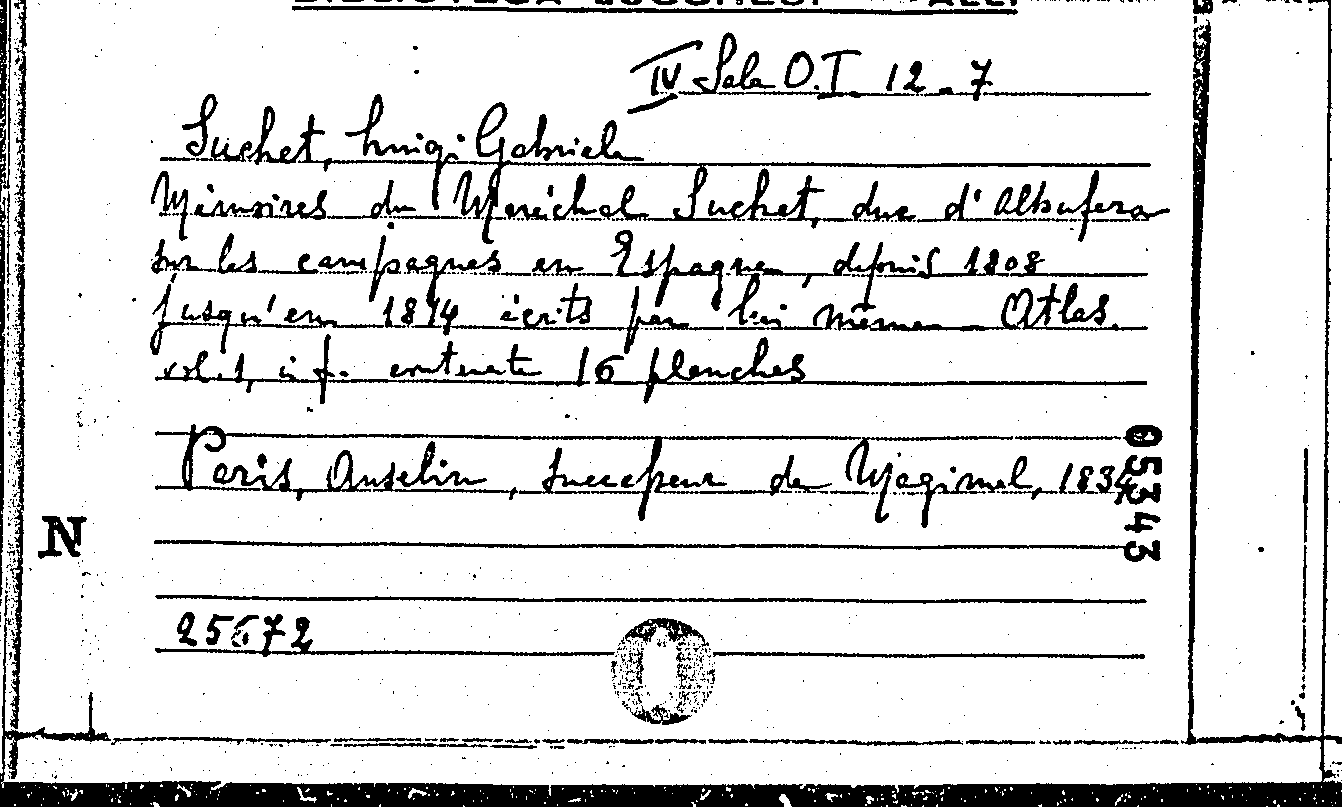 IV Sala O.I. 12-7
Suchet, Luigi Gabriele
Mémoires du Maréchal Suchet, duc d'Albufera
sur les campagnes en Espagne, depuis 1808
jusqu'en 1814 écrits par lui même - Atlas.
vol. 1, in f. contenente 16 planches
Paris, Anselin, successeur de Magimel, 1834
05343
N
25672